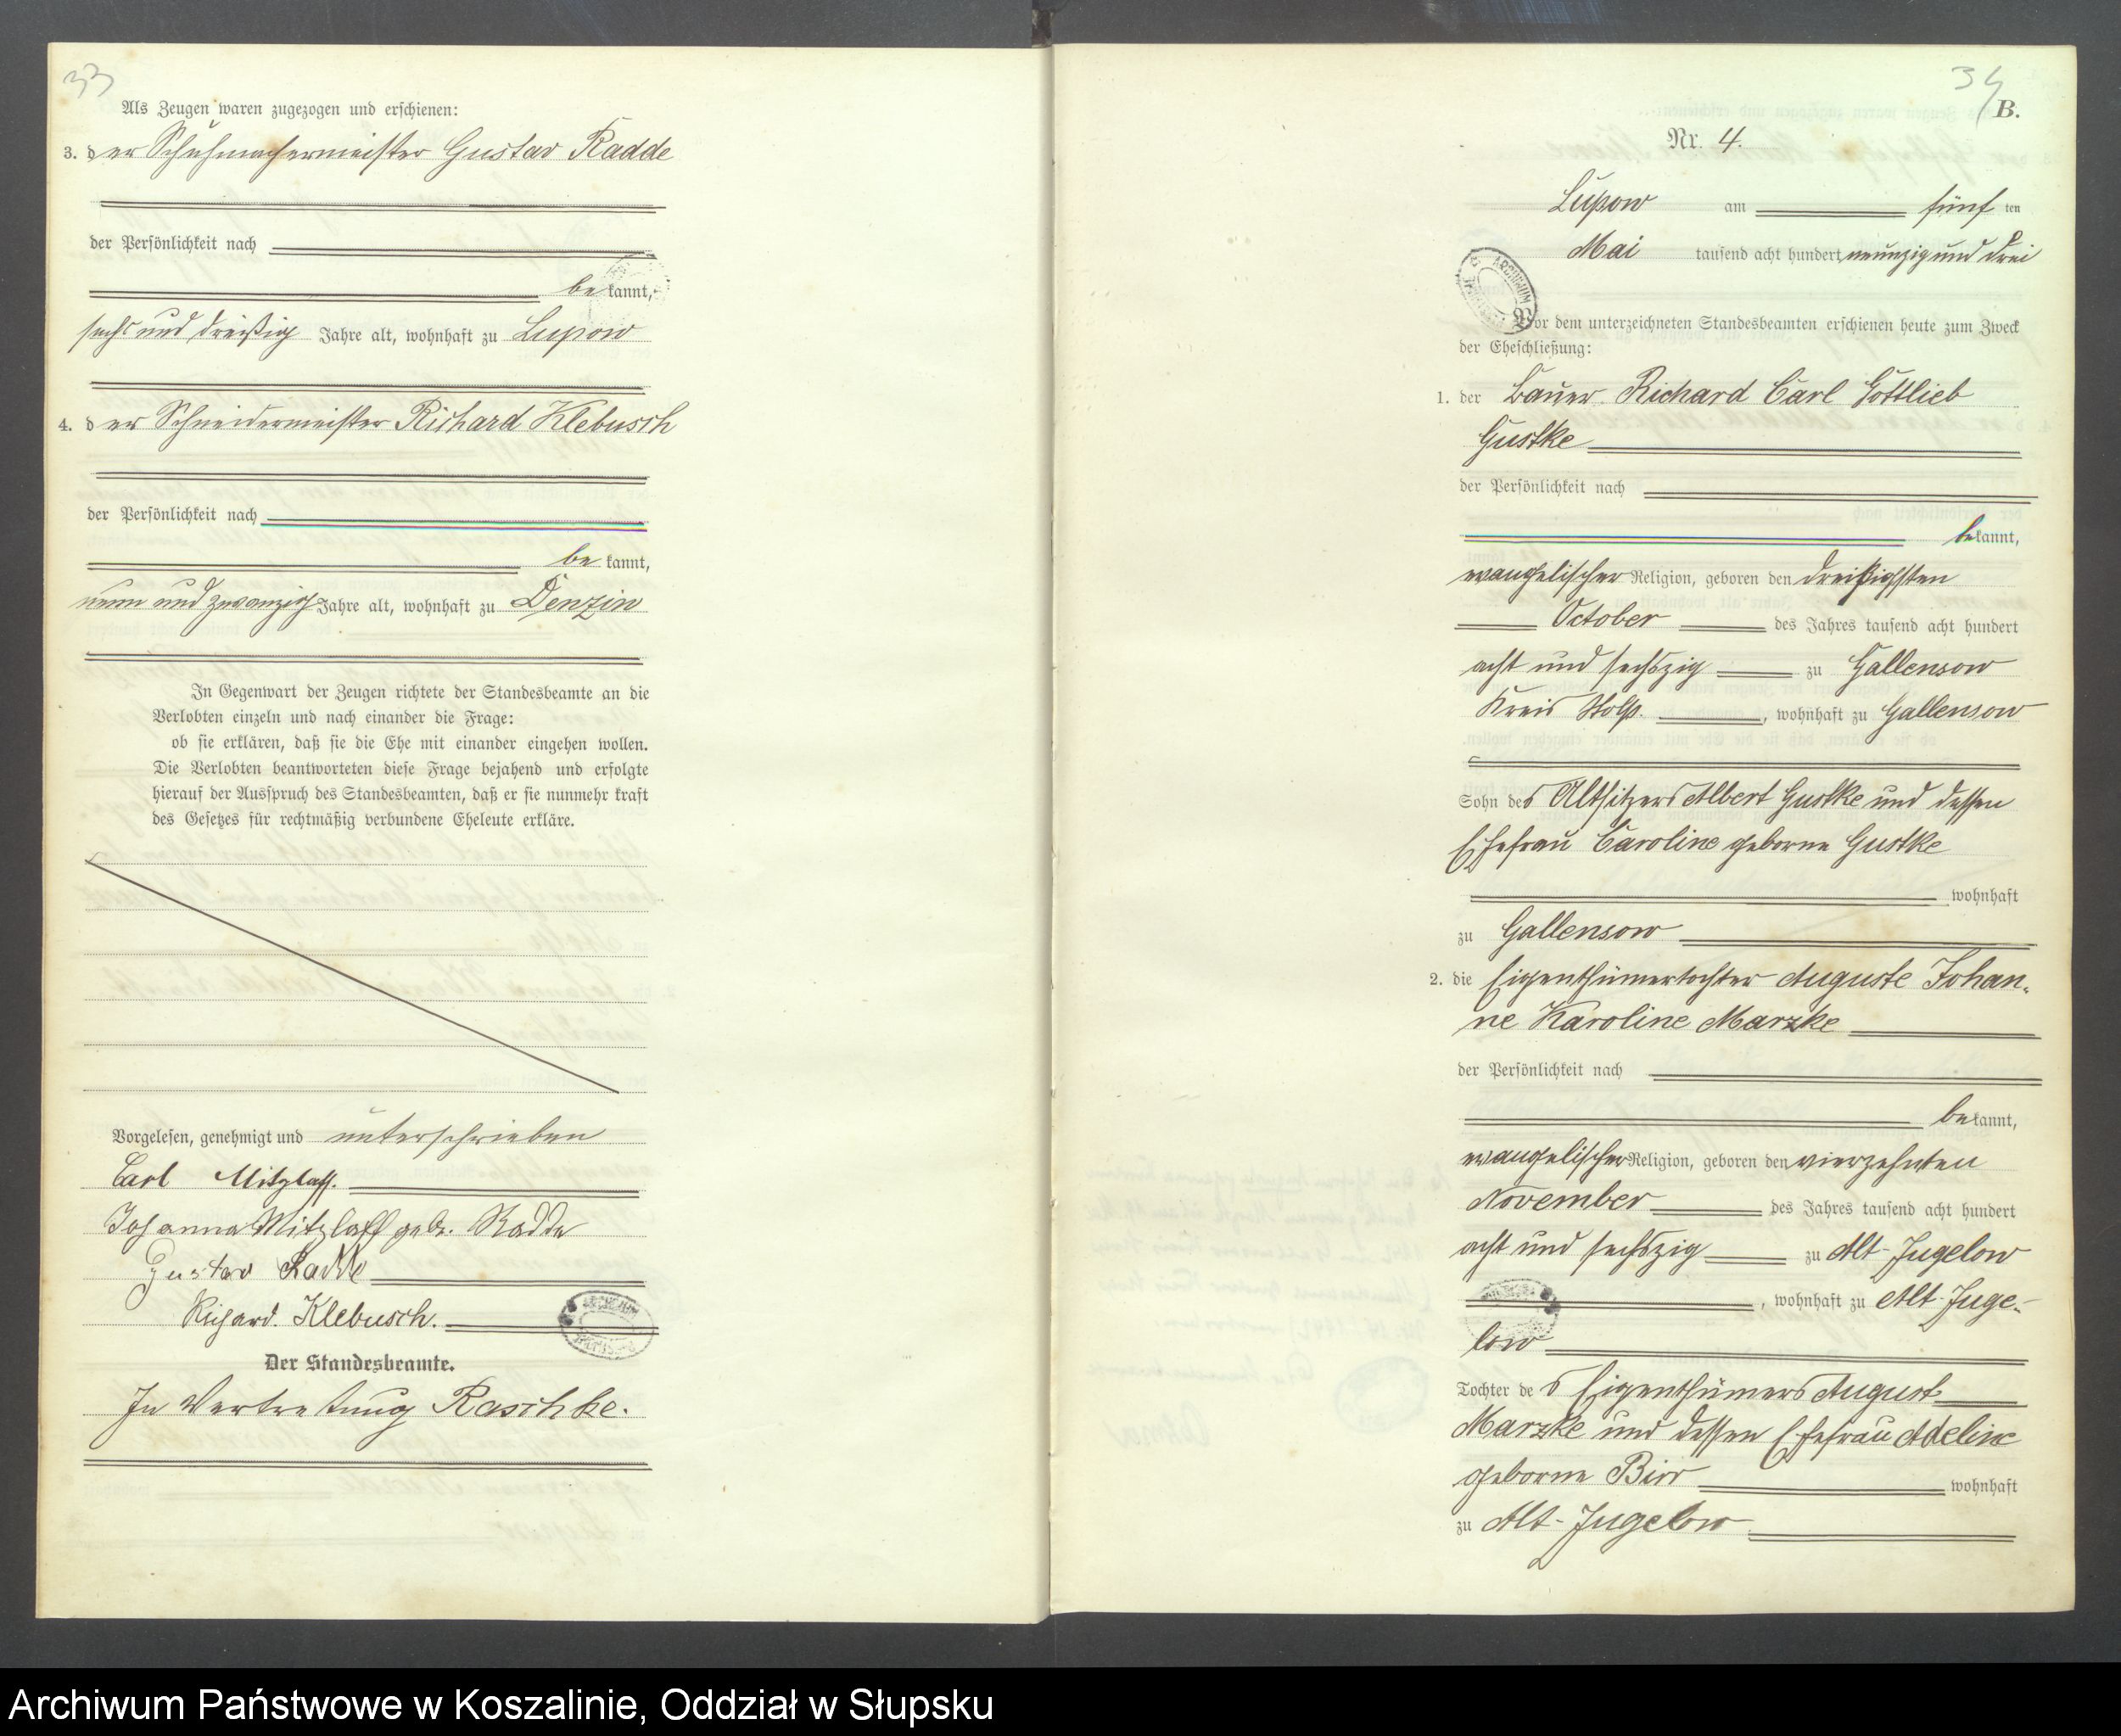 33
Als Zeugen waren zugezogen und erschienen:
3. der Schuhmachermeister Gustav Radde
der Persönlichkeit nach
bekannt,
sechs und dreißig Jahre alt, wohnhaft zu Lupow
4. der Schneidermeister Richard Klebusch
der Persönlichkeit nach
bekannt,
neun und zwanzig Jahre alt, wohnhaft zu Denzin
In Gegenwart der Zeugen richtete der Standesbeamte an die
Verlobten einzeln und nach einander die Frage:
ob sie erklären, daß sie die Ehe mit einander eingehen wollen.
Die Verlobten beantworteten diese Frage bejahend und erfolgte
hierauf der Ausspruch des Standesbeamten, daß er sie nunmehr kraft
des Gesetzes für rechtmäßig verbundene Eheleute erkläre.
Vorgelesen, genehmigt und unterschrieben
Carl Mitzlaff.
Johanna Mitzlaff geb. Radde
Gustav Radde
Richard. Klebusch.
Der Standesbeamte.
In Vertretung Raschke.
34
B.
Nr. 4.
Lupow am fünften
Mai tausend acht hundert neunzig und drei
Vor dem unterzeichneten Standesbeamten erschienen heute zum Zweck
der Eheschließung:
1. der Bauer Richard Carl Gottlieb
Gustke
der Persönlichkeit nach
bekannt,
evangelischer Religion, geboren den dreißigsten
October des Jahres tausend acht hundert
acht und sechszig zu Gallensow
Kreis Stolp. , wohnhaft zu Gallensow
Sohn des Altsitzers Albert Gustke und dessen
Ehefrau Caroline geborne Gustke
wohnhaft
zu Gallensow
2. die Eigenthümertochter Auguste Johan-
ne Karoline Marzke
der Persönlichkeit nach
bekannt,
evangelischer Religion, geboren den vierzehnten
November des Jahres tausend acht hundert
acht und sechszig zu Alt-Jugelow
, wohnhaft zu Alt-Juge-
low
Tochter des Eigenthümers August
Marzke und dessen Ehefrau Adeline
geborne Birr wohnhaft
zu Alt-Jugelow
Archiwum Państwowe w Koszalinie, Oddział w Słupsku